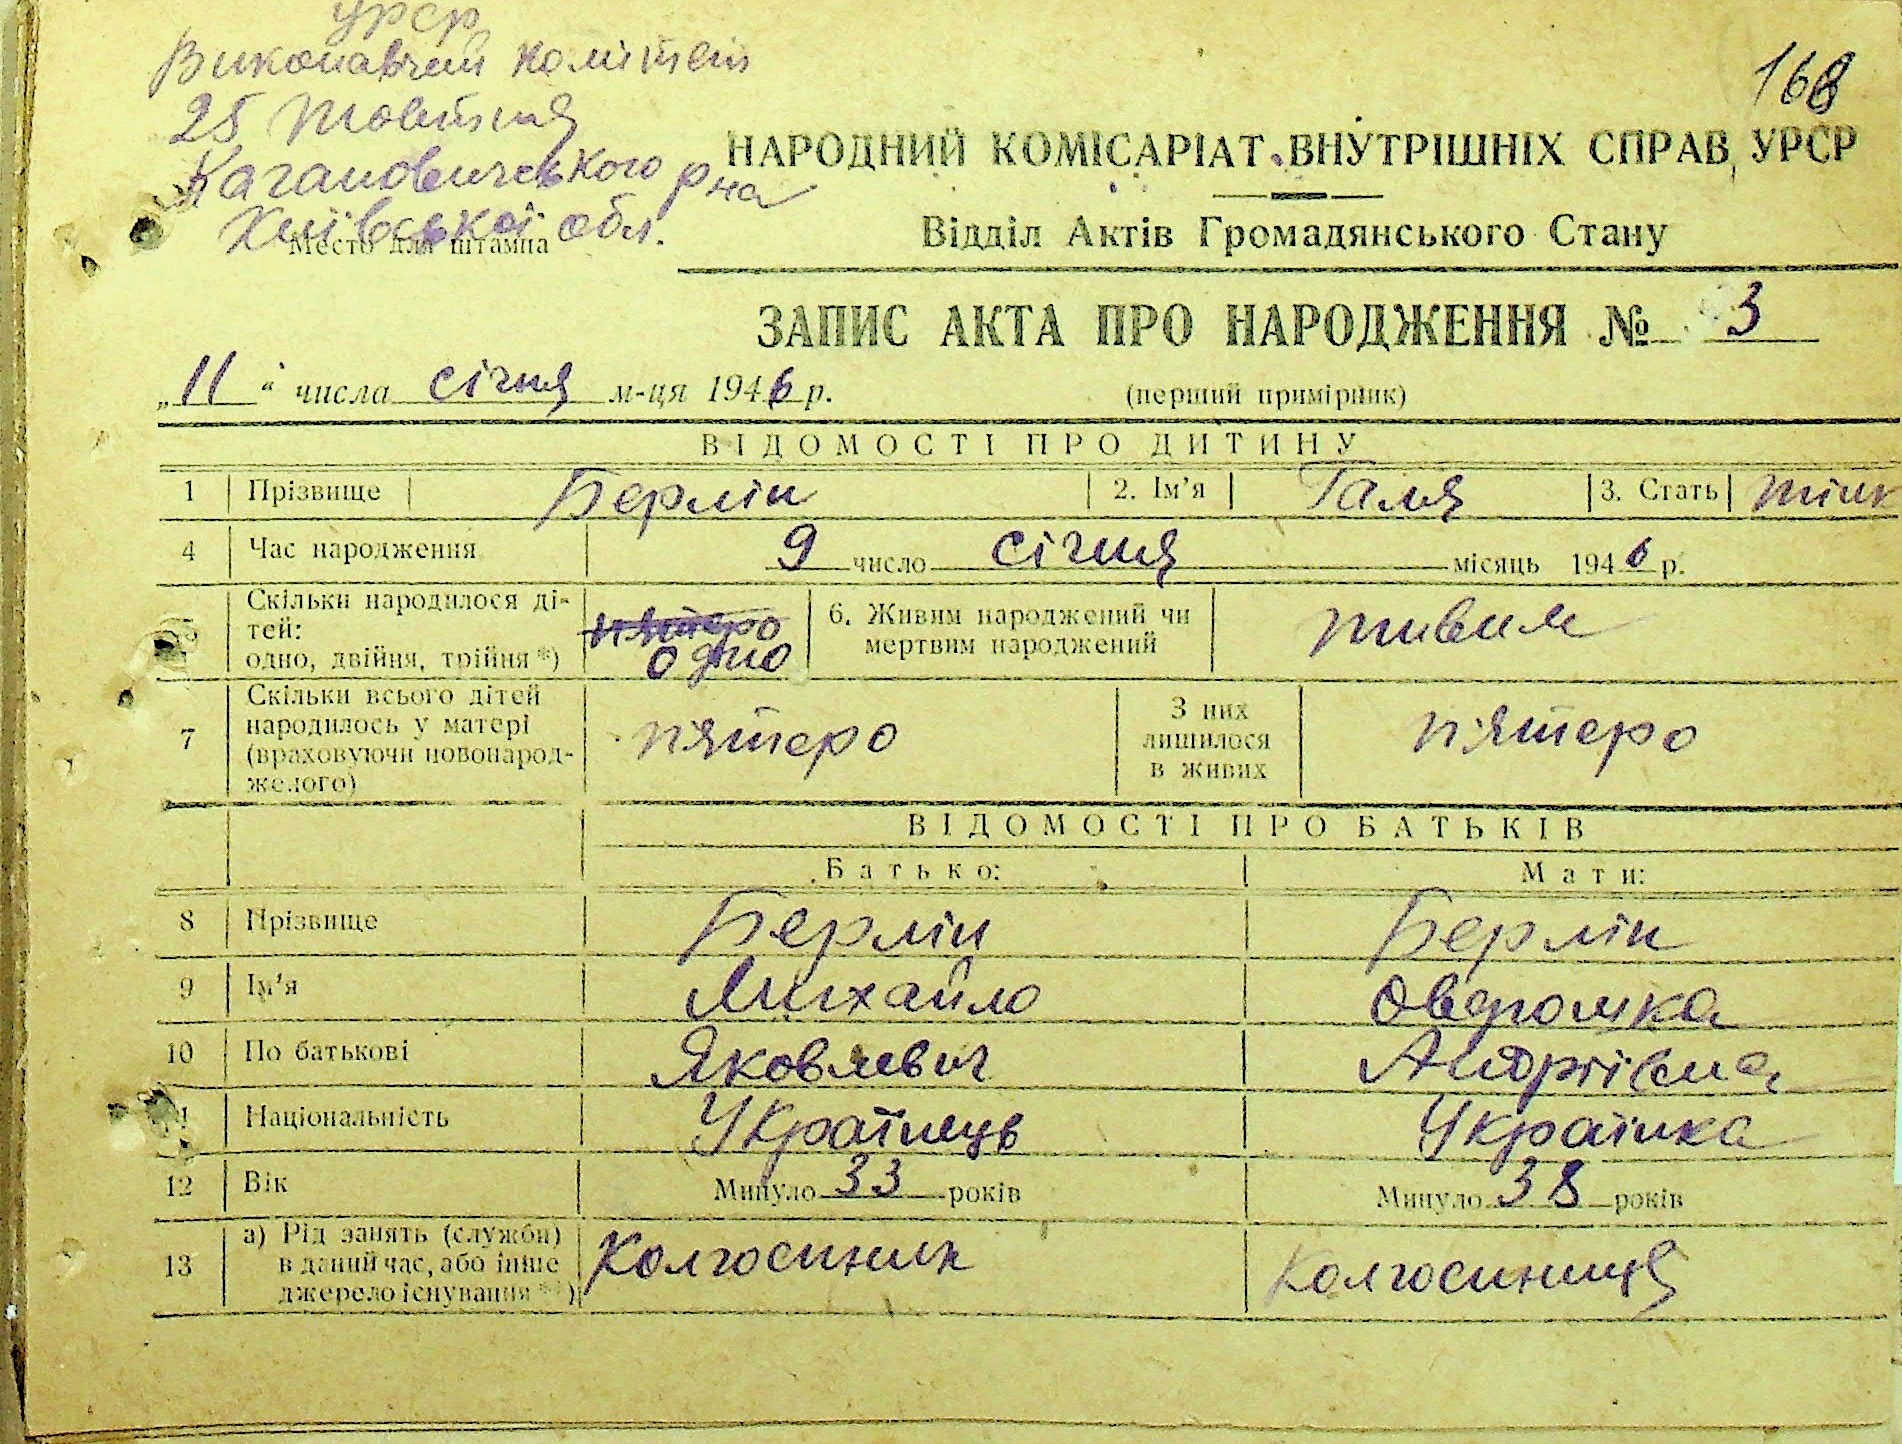 УРСР
Виконавчий комітет
25 Жовтня
Кагановичського р на
Київської обл.
Место для штампа
168
НАРОДНИЙ КОМІСАРІАТ ВНУТРІШНІХ СПРАВ УРСР
Відділ Актів Громадянського Стану
ЗАПИС АКТА ПРО НАРОДЖЕННЯ № 3
„11“ числа січня м-ця 1946 р. (перший примірник)
ВІДОМОСТІ ПРО ДИТИНУ
1 Прізвище Берлін 2. Ім’я Галя 3. Стать жінк
4 Час народження 9 число січня місяць 1946 р.
5 Скільки народилося ді-
тей:
одно, двійня, трійня *) пятеро
одно
6. Живим народжений чи
мертвим народжений живим
7 Скільки всього дітей
народилось у матері
(враховуючи новонарод-
желого) п'ятеро
З них
лишилося
в живих п'ятеро
ВІДОМОСТІ ПРО БАТЬКІВ
Батько: Мати:
8 Прізвище Берлін Берлін
9 Ім’я Михайло
10 По батькові Яковлевич Андріївна
11 Національність Українець Українка
12 Вік Минуло 33 років Минуло 38 років
13 а) Рід занять (служби)
в даний час, або інше
джерело існування **) Колгоспник Колгоспниця